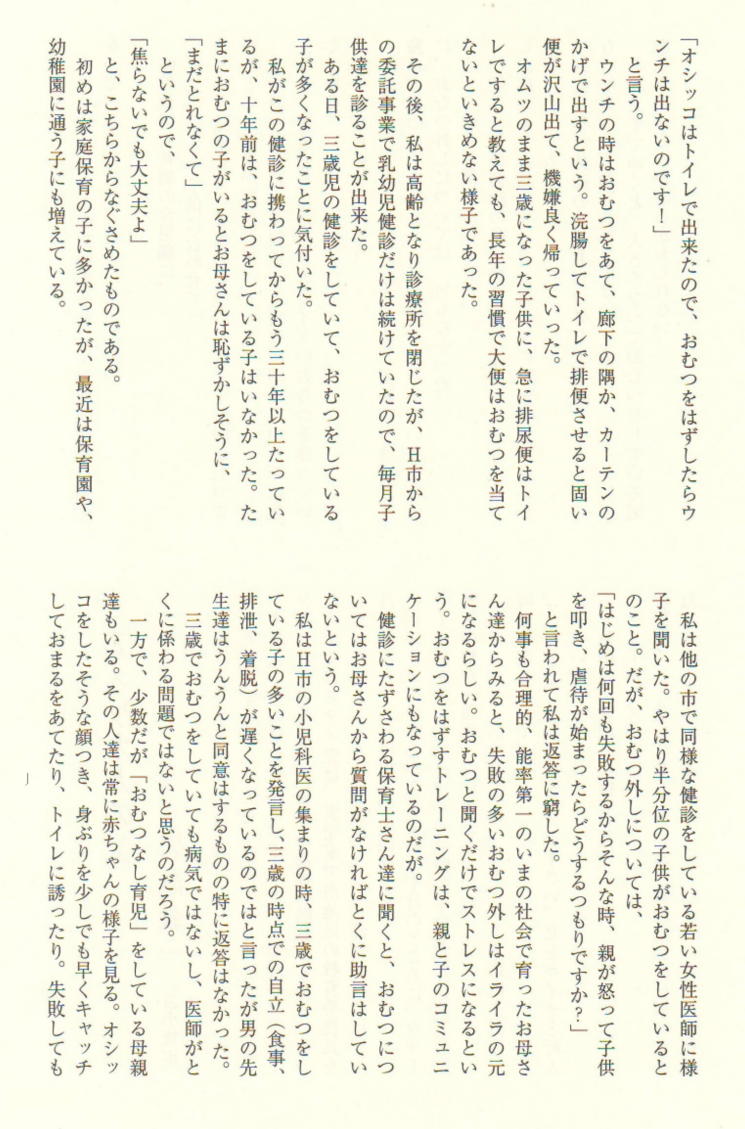 「オシッコはトイレで出来たので、おむつをはずしたらウ
ンチは出ないのです！」
と言う。
ウンチの時はおむつをあて、廊下の隅か、カーテンの
かげで出すという。浣腸してトイレで排便させると固い
便が沢山出て、機嫌良く帰っていった。
オムツのまま三歳になった子供に、急に排尿便はトイ
レですると教えても、長年の習慣で大便はおむつを当て
ないといきめない様子であった。
その後、私は高齢となり診療所を閉じたが、H市から
の委託事業で乳幼児健診だけは続けていたので、毎月子
供達を診ることが出来た。
ある日、三歳児の健診をしていて、おむつをしている
子が多くなったことに気付いた。
私がこの健診に携わってからもう三十年以上たってい
るが、十年前は、おむつをしている子はいなかった。た
まにおむつの子がいるとお母さんは恥ずかしそうに、
「まだとれなくて」
というので、
「焦らないでも大丈夫よ」
と、こちらからなぐさめたものである。
初めは家庭保育の子に多かったが、最近は保育園や、
幼稚園に通う子にも増えている。
私は他の市で同様な健診をしている若い女性医師に様
子を聞いた。やはり半分位の子供がおむつをしていると
のこと。だが、おむつ外しについては、
「はじめは何回も失敗するからそんな時、親が怒って子供
を叩き、虐待が始まったらどうするつもりですか？」
と言われて私は返答に窮した。
何事も合理的、能率第一のいまの社会で育ったお母さ
ん達からみると、失敗の多いおむつ外しはイライラの元
になるらしい。おむつと聞くだけでストレスになるとい
う。おむつをはずすトレーニングは、親と子のコミュニ
ケーションにもなっているのだが。
健診にたずさわる保育士さん達に聞くと、おむつにつ
いてはお母さんから質問がなければとくに助言はしてい
ないという。
私はH市の小児科医の集まりの時、三歳でおむつをし
ている子の多いことを発言し、三歳の時点での自立（食事、
排泄、着脱）が遅くなっているのではと言ったが男の先
生達はうんうんと同意はするものの特に返答はなかった。
三歳でおむつをしていても病気ではないし、医師がと
くに係わる問題ではないと思うのだろう。
一方で、少数だが「おむつなし育児」をしている母親
達もいる。その人達は常に赤ちゃんの様子を見る。オシッ
コをしたそうな顔つき、身ぶりを少しでも早くキャッチ
しておまるをあてたり、トイレに誘ったり。失敗しても